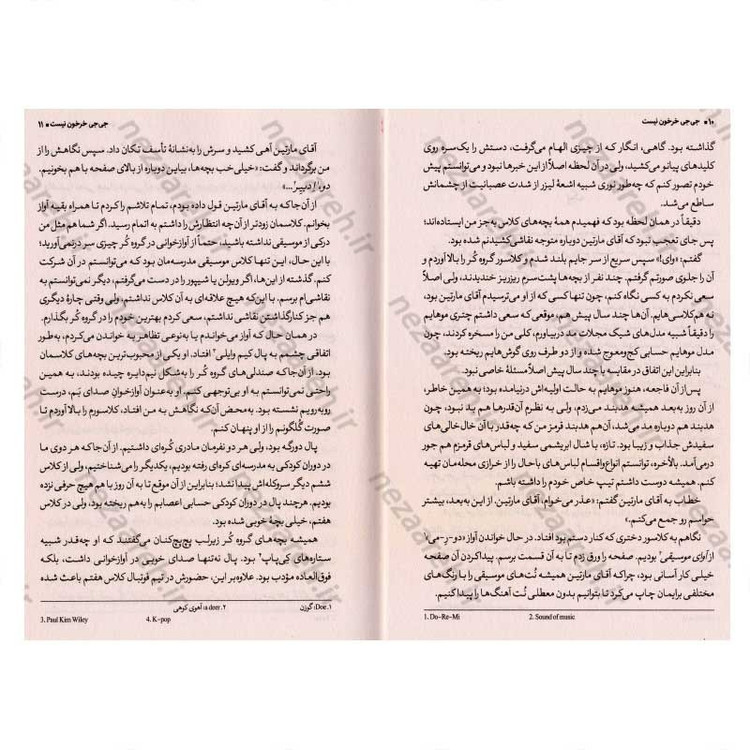 ۱۰ ■ جی‌جی خرخون نیست
گذاشته بود. گاهی، انگار که از چیزی الهام می‌گرفت، دستش را یک‌سره روی
کلیدهای پیانو می‌کشید، ولی در آن لحظه اصلاً از این خبرها نبود و می‌توانستم پیش
خودم تصور کنم که چه‌طور نوری شبیه اشعهٔ لیزر از شدت عصبانیت از چشمانش
ساطع می‌شد.
دقیقاً در همان لحظه بود که فهمیدم همهٔ بچه‌های کلاس به‌جز من ایستاده‌اند؛
پس جای تعجب نبود که آقای مارتین دوباره متوجه نقاشی‌کشیدنم شده بود.
گفتم: «وای!» سپس سریع از سر جایم بلند شدم و کلاسور گروه کُر را بالا آوردم و
آن را جلوی صورتم گرفتم. چند نفر از بچه‌ها پشت‌سرم ریزریز خندیدند، ولی اصلاً
سعی نکردم به کسی نگاه کنم، چون تنها کسی که از او می‌ترسیدم آقای مارتین بود،
نه هم‌کلاسی‌هایم. آن‌ها چند سال پیش هم، موقعی که سعی داشتم چتری موهایم
را دقیقاً شبیه مدل‌های شیک مجلات مد دربیاورم، کلی من را مسخره کردند، چون
مدل موهایم حسابی کج‌ومعوج شده و از دو طرف روی گوش‌هایم ریخته بود.
بنابراین این اتفاق در مقایسه با چند سال پیش اصلاً مسئلهٔ خاصی نبود.
پس از آن فاجعه، هنوز موهایم به حالت اولیه‌اش درنیامده بود؛ به همین خاطر،
از آن روز به‌بعد همیشه هدبند می‌زدم، ولی به نظرم آن‌قدرها هم بد نبود، چون
هدبند هم دوباره مد می‌شد، آن‌هم هدبند قرمز من که چه‌قدر با آن خال‌خالی‌های
سفیدش جذاب و زیبا بود. تازه، با شال ابریشمی سفید و لباس‌های قرمزم هم جور
درمی‌آمد. بالأخره، توانستم انواع‌واقسام لباس‌های باحال را از خرازی محله‌مان تهیه
کنم. همیشه دوست داشتم تیپ خاص خودم را داشته باشم.
خطاب به آقای مارتین گفتم: «عذر می‌خوام، آقای مارتین. از این به‌بعد، بیشتر
حواسم رو جمع می‌کنم.»
نگاهم به کلاسور دختری که کنار دستم بود افتاد. در حال خواندن آواز «دو-رِ-می»۱
از آوای موسیقی۲ بودیم. صفحه را ورق زدم تا به آن قسمت برسم. پیداکردن آن صفحه
خیلی کار آسانی بود، چراکه آقای مارتین همیشه نُت‌های موسیقی را با رنگ‌های
مختلفی برایمان چاپ می‌کرد تا بتوانیم بدون معطلی نُت آهنگ‌ها را پیدا کنیم.
1. Do-Re-Mi 2. Sound of music
جی‌جی خرخون نیست ■ ۱۱
آقای مارتین آهی کشید و سرش را به‌نشانهٔ تأسف تکان داد. سپس نگاهش را از
من برگرداند و گفت: «خیلی خب بچه‌ها، بیاین دوباره از بالای صفحه با هم بخونیم.
از آن‌جا که به آقای مارتین قول داده بودم، تمام تلاشم را کردم تا همراه بقیه آواز
بخوانم. کلاسمان زودتر از آن‌چه انتظارش را داشتم به اتمام رسید. اگر شما هم مثل من
درکی از موسیقی نداشته باشید، حتماً از آوازخوانی در گروه کُر چیزی سر درنمی‌آورید؛
با این حال، این تنها کلاس موسیقی مدرسه‌مان بود که می‌توانستم در آن شرکت
کنم. گذشته از این‌ها، اگر ویولن یا شیپور را در دست می‌گرفتم، دیگر نمی‌توانستم به
نقاشی‌ام برسم. با این‌که هیچ علاقه‌ای به آن کلاس نداشتم، ولی وقتی چارهٔ دیگری
هم جز کنارگذاشتن نقاشی نداشتم، سعی کردم بهترین خودم را در گروه کُر بگذارم.
در همان حال که آواز می‌خواندم یا به‌نوعی تظاهر به خواندن می‌کردم، به‌طور
اتفاقی چشمم به پال کیم وایلی۳ افتاد. او یکی از محبوب‌ترین بچه‌های کلاسمان
بود. از آن‌جا که صندلی‌های گروه کُر را به‌شکل نیم‌دایره چیده بودند، به همین
راحتی نمی‌توانستم به او بی‌توجهی کنم. او به‌عنوان آوازخوان صدای بَم، درست
روبه‌رویم نشسته بود. به‌محض آن‌که نگاهش به من افتاد، کلاسورم را بالا آوردم تا
صورت گُلگونم را از او پنهان کنم.
پال دورگه بود، ولی هر دو نفرمان مادری کُره‌ای داشتیم. از آن‌جا که هر دوی ما
در دوران کودکی به مدرسه‌ای کُره‌ای رفته بودیم، یکدیگر را می‌شناختیم، ولی از کلاس
ششم دیگر سروکله‌اش پیدا نشد؛ بنابراین از آن موقع تا به آن روز با هم هیچ حرفی نزده
بودیم. هرچند پال در دوران کودکی حسابی اعصابم را به‌هم ریخته بود، ولی در کلاس
هفتم، خیلی بچهٔ خوبی شده بود.
همیشه بچه‌های گروه کُر زیرلب پچ‌پچ‌کنان می‌گفتند که او چه‌قدر شبیه
ستاره‌های کی‌پاپ۴ بود. پال نه‌تنها صدای خوبی در آوازخوانی داشت، بلکه
فوق‌العاده مؤدب بود. علاوه‌بر این، حضورش در تیم فوتبال کلاس هفتم باعث شده
۱. Doe: گوزن ۲. a deer: آهوی کوهی
3. Paul Kim Wiley 4. K-pop
nezaareh.ir